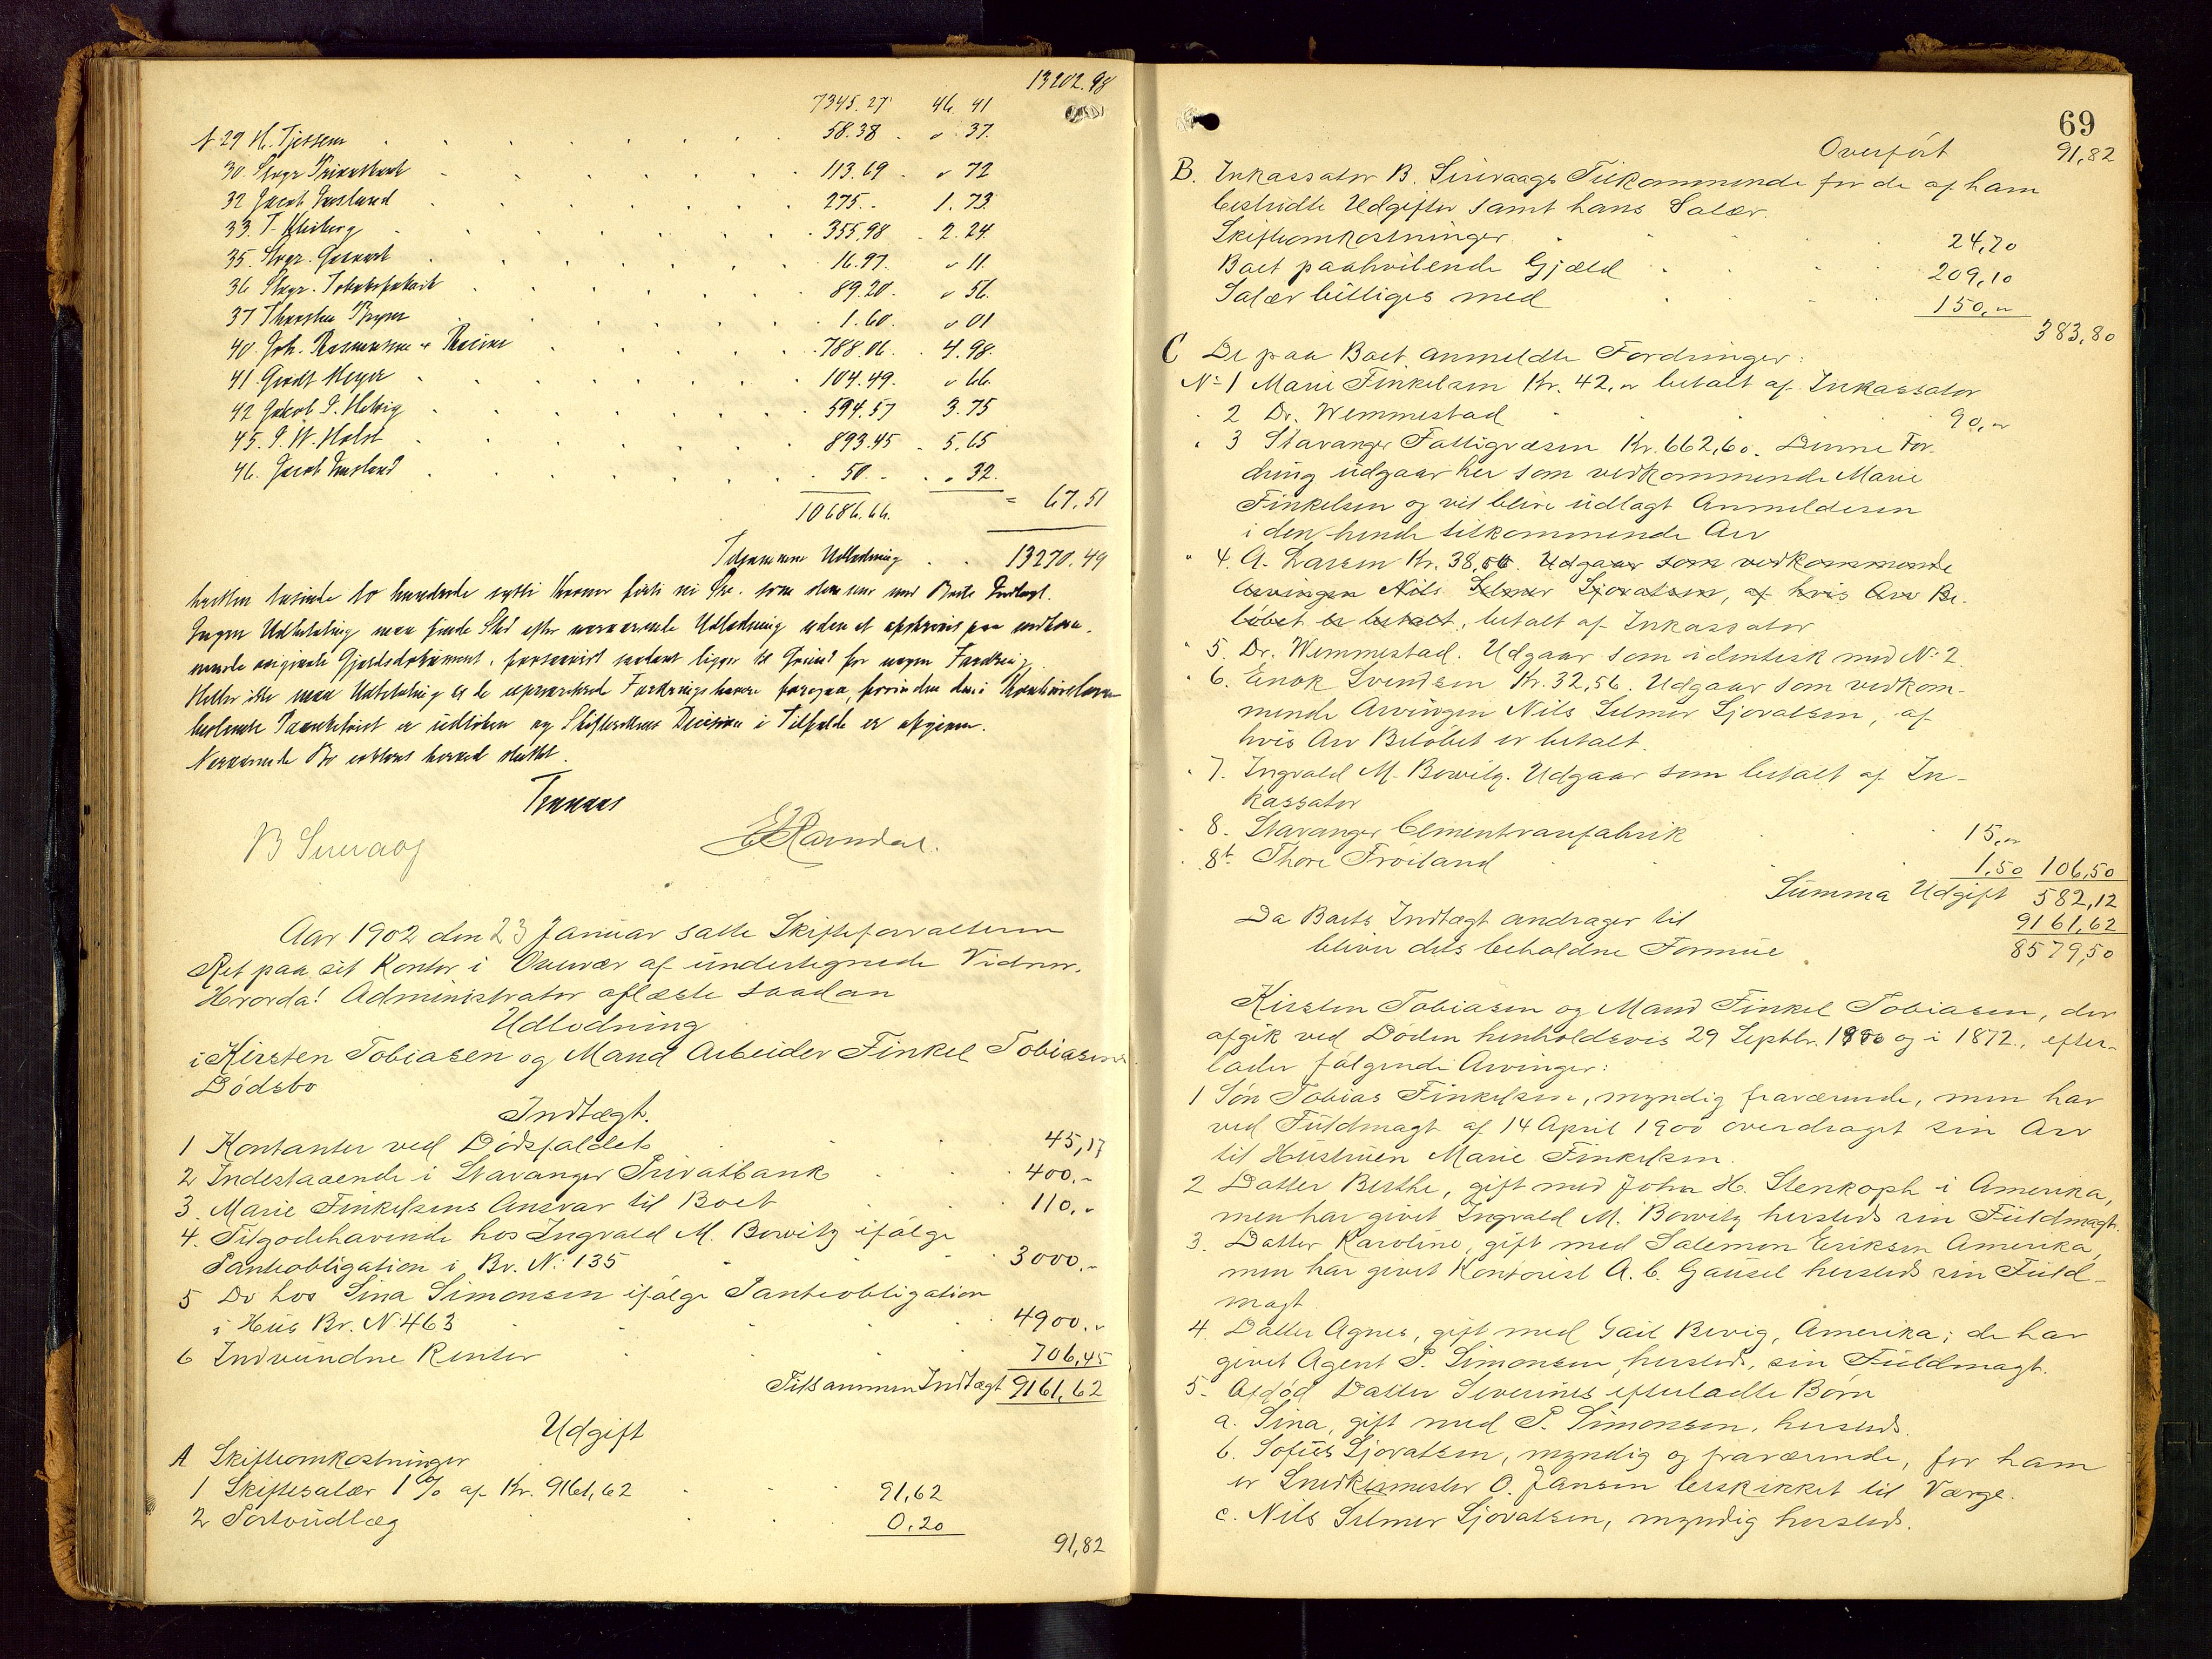 13202.98
7345.27 46.41
N 29 H. Tjessem 58.38 " 37.
30. Stvgr Privatbank 113.69 " 72
32 Jacob Uesland 275.- 1.73
33. T. Kleiberg 355.98 2.24.
35. Stvgr. 16.97 " 11.
36 Stvgr. Tobaksfabrik 89.20 " 56.
37 Thorsten Bryne 1.60. " 01
40. Joh. Rasmussen & Racine 788.06. 4.98.
41 Gerdt Meyer 104.49. " 66.
42 Jakob P. Helvig 594.57 3.75
45. P. W. Holst 893.45 5.65
46. Jacob Uesland 50.- " 32.
10686.66. = 67.51
Tilsammen Udlodning 13270.49
tretten tusinde to hundrede sytti Kroner førti ni Øre. som stemmer med Boets Indtægt.
Ingen Udbetaling maa finde Sted efter nærværende Udlodning uden at afskrives paa vedkom-
mende originale Gjældsdokument, forsaavidt saadant ligger til Grund for nogen Fordring.
Heller ikke maa Udbetaling til de uprioriterede Fordringshavere foregaa, forinden den i Konkursloven
bestemte Paaankefrist er udløben og Skifterettens Decision i Tilfælde er afgiven.
Nærværende Bo erklæres herved sluttet.
B Sirevaag
E Ramdal.
Aar 1902 den 23 Januar satte Skifteforvalteren
Ret paa sit Kontor i Overvær af undertegnede Vidner.
Hvorda! Administrator oplæste saadan
Udlodning
i Kirsten Tobiasen og Mand Arbeider Finkel Tobiasens
Dødsbo
Indtægt.
1 Kontanter ved Dødsfaldet 45,17
2 Indestaaende i Stavanger Privatbank 400,-
3. Marie Finkelsens Ansvar til Boet 110,-
4. Tilgodehavende hos Ingvald M. Bowitz ifølge
Panteobligation i Br. N: 135 3000,-
5 Do hos Sina Simonsen ifølge Panteobligation
i Hus Br. N: 463 4900,-
6 Indvundne Renter 706,45
Tilsammen Indtægt 9161,62
Udgift
A Skifteomkostninger
1 Skiftesalær 1 % af Kr. 9161,62 91,62
2 Portoudlæg 0.20
91,82
69
Overført 91,82
B. Inkassator B. Sirevaags Tilkommende for de af ham
bestridte Udgifter samt hans Salær.
Skifteomkostninger 24,70
Boet paahvilende Gjæld 209,10
Salær billiges med 150,"
383,80
C De paa Boet anmeldte Fordringer:
N: 1 Marie Finkelsen Kr. 42," betalt af Inkassator
" 2 Dr. Wemmestad 90,"
" 3 Stavanger Fattigvæsen Kr. 662,60. Denne For-
dring udgaar her som vedkommende Marie
Finkelsen og vil blive udlagt Anmelderen
i den hende tilkommende Arv
" 4. A. Larsen Kr. 38,50. Udgaar som vedkommende
Arvingen Nils Selmer Sjovatsen, af hvis Arv Be-
løbet er betalt, betalt af Inkassator
" 5. Dr. Wemmestad. Udgaar som identisk med N: 2.
" 6. Enok Svendsen Kr. 32,56. Udgaar som vedkom-
mende Arvingen Nils Selmer Sjovatsen, af
hvis Arv Beløbet er betalt.
" 7. Ingvald M. Bowitz. Udgaar som betalt af In-
kassator
" 8. Stavanger Cementvarefabrik 15,"
" 8b Thore Frøiland 1.50 106,50
Summa Udgift 582,12
Da Boets Indtægt andrager til 9161,62
bliver dets beholdne Formue 8579,50
Kirsten Tobiasen og Mand Finkel Tobiasen, der
afgik ved Døden henholdsvis 29 Septbr. 1900 og i 1872, efter-
lader følgende Arvinger:
1 Søn Tobias Finkelsen, myndig fraværende, men har
ved Fuldmagt af 14 April 1900 overdraget sin Arv
til Hustruen Marie Finkelsen.
2 Datter Berthe, gift med John H. Stenkoph i Amerika,
men har givet Ingvald M. Bowitz hersteds sin Fuldmagt.
3. Datter Karoline, gift med Salemon Eriksen Amerika,
men har givet Kontorist A. C. Gausel hersteds sin Fuld-
magt
4. Datter Agnes, gift med Gail Bevig, Amerika; de har
givet Agent P. Simonsen, hersteds, sin Fuldmagt.
5- Afdød Datter Severines efterladte Børn
a. Sina, gift med P. Simonsen, hersteds.
b. Sofus Sjovatsen, myndig og fraværende, for ham
er Snedkermester O. Jansen beskikket til Værge.
c. Nils Selmer Sjovatsen, myndig hersteds.